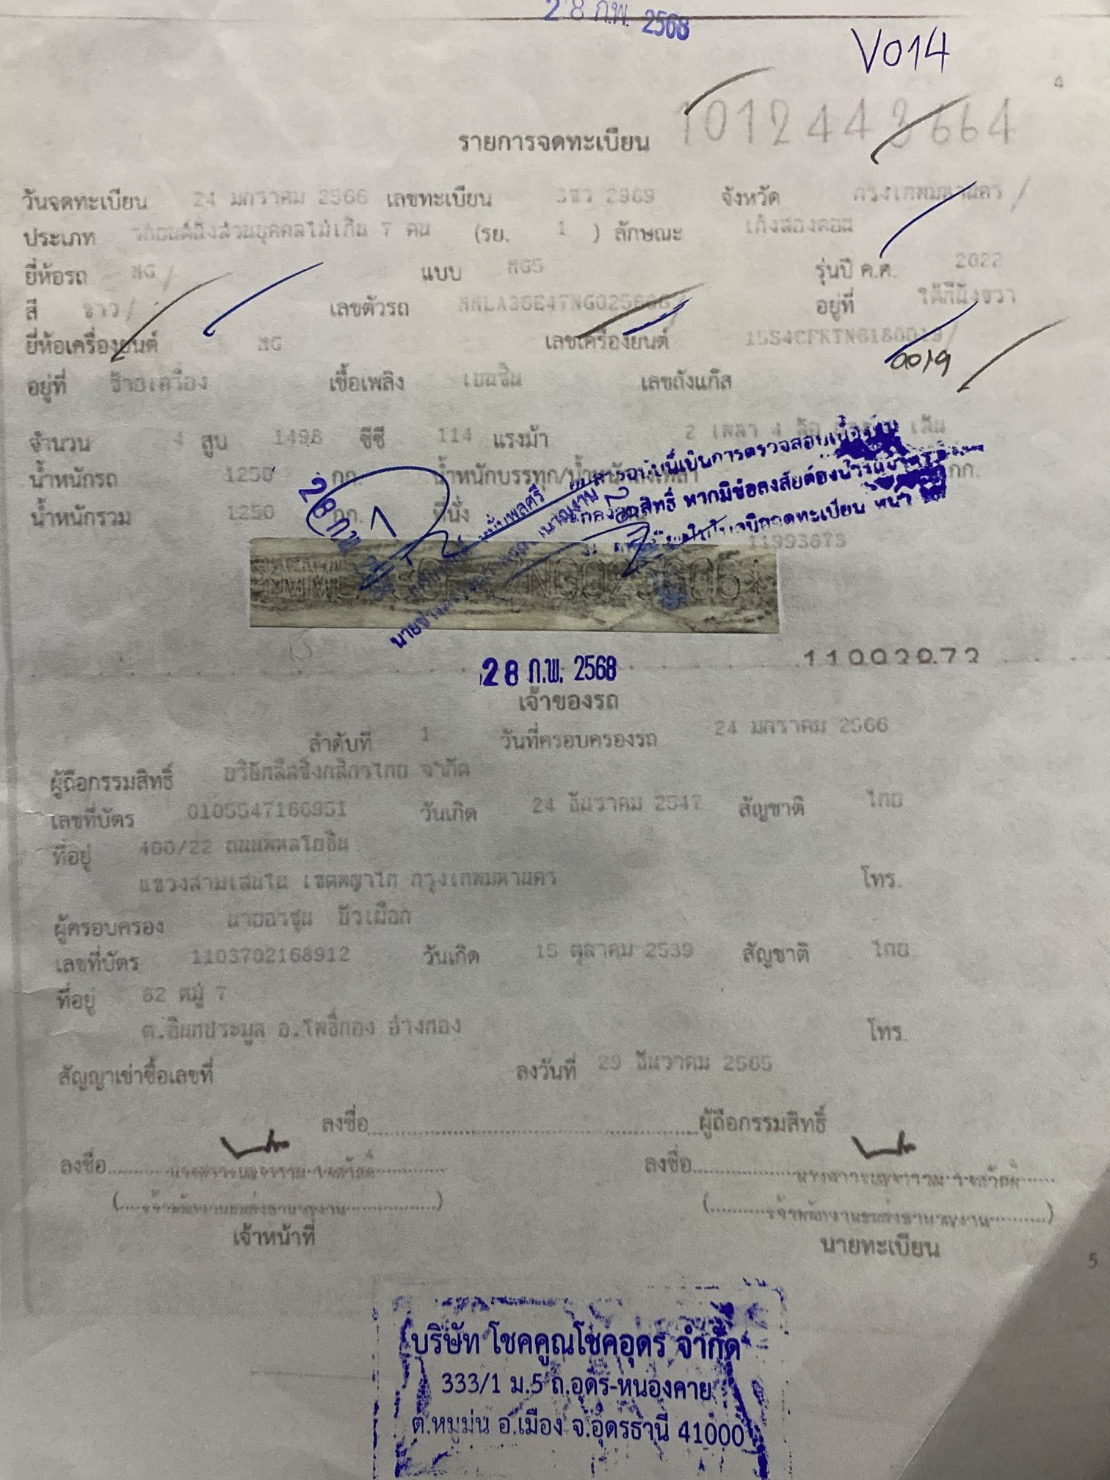 28 ก.พ. 2568
V014
4
1012443664
รายการจดทะเบียน
วันจดทะเบียน 24 มกราคม 2566 เลขทะเบียน 2969 จังหวัด กรุงเทพมหานคร /
ประเภท รถยนต์นั่งส่วนบุคคลไม่เกิน 7 คน (รย. 1 ) ลักษณะ เก๋งสองตอน
ยี่ห้อรถ MG / แบบ MG5 รุ่นปี ค.ศ. 2022
สี ขาว / เลขตัวรถ อยู่ที่ ใต้ที่นั่งขวา
ยี่ห้อเครื่องยนต์ MG เลขเครื่องยนต์ 15S4CFKTN6180019/
0019
อยู่ที่ ซ้ายเครื่อง เชื้อเพลิง เบนซิน เลขถังแก๊ส
จำนวน 4 สูบ 1498 ซีซี 114 แรงม้า 2 เพลา 4 ล้อ เส้น
น้ำหนักรถ 1250 กก. น้ำหนักบรรทุก/น้ำหนักลงเพลา กก.
น้ำหนักรวม 1250 กก. ที่นั่ง
11993873
28 ก.พ. 2568
11002072
เจ้าของรถ
ลำดับที่ 1 วันที่ครอบครองรถ 24 มกราคม 2566
ผู้ถือกรรมสิทธิ์ บริษัทลีสซิ่งกสิกรไทย จำกัด
เลขที่บัตร 0105547166951 วันเกิด 24 ธันวาคม 2547 สัญชาติ ไทย
ที่อยู่ 400/22 ถนนพหลโยธิน
แขวงสามเสนใน เขตพญาไท กรุงเทพมหานคร โทร.
ผู้ครอบครอง บัวเผือก
เลขที่บัตร 1103702168912 วันเกิด 15 ตุลาคม 2539 สัญชาติ ไทย
ที่อยู่ 62 หมู่ 7
ต.อินทประมูล อ.โพธิ์ทอง อ่างทอง โทร.
สัญญาเช่าซื้อเลขที่ ลงวันที่ 29 ธันวาคม 2565
ลงชื่อ ผู้ถือกรรมสิทธิ์
ลงชื่อ ลงชื่อ
(เจ้าพนักงานขนส่งชำนาญงาน) (เจ้าพนักงานขนส่งชำนาญงาน)
เจ้าหน้าที่ นายทะเบียน
5
บริษัท โชคคูณโชคอุดร จำกัด
333/1 ม.5 ถ.อุดร-หนองคาย
ต.หมูม่น อ.เมือง จ.อุดรธานี 41000